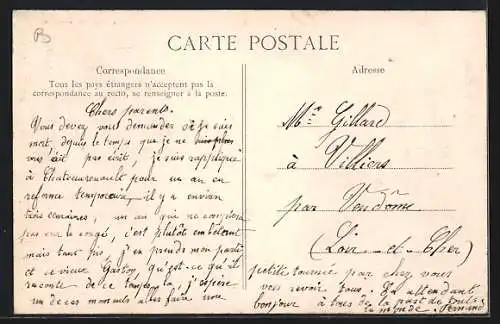 B
CARTE POSTALE
Correspondance
Tous les pays étrangers n'acceptent pas la
correspondance au recto, se renseigner à la poste.
Chers parents.
Vous devez vous demander si je suis
mort, depuis le temps que je ne
vous ait pas écrit, je suis rappliqué
à Chateaurenault pour un an en
reforme temporaire, il y a environ
trois semaines, un an qui ne comptera
pas sur le congé, c'est plutôt embêtant
mais tant pis, j'en prends mon parti
et ce vieux Gaston, qu'est-ce qu'il
raconte de ce temps là, j'espère
un de ces matins aller faire une
Adresse
Mr Gillard
à Villiers
par Vendôme
(Loir-et-Cher)
petite tournée par chez vous
vous revoir tous. En attendant
bonjour à tous de la part de tout
le monde. Fernand